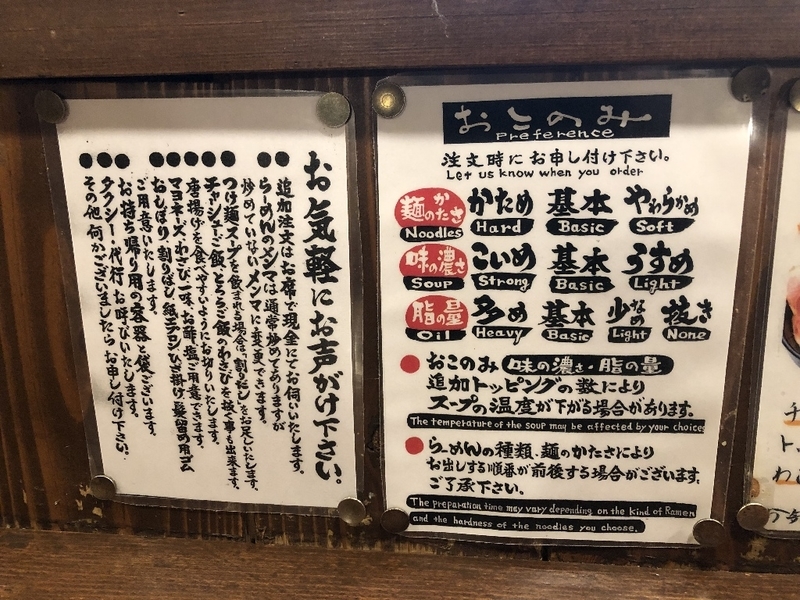 お気軽にお声がけ下さい。
追加注文はお席で現金にてお伺いいたします。
らーめんのメンマは通常炒めてありますが
炒めていないメンマに変更できます。
つけ麺スープを飲まれる場合は、割りだしをお足しいたします。
チャシューご飯、とろろご飯のわさびを抜く事も出来ます。
唐揚げを食べやすいようにお切りいたします。
マヨネーズ・わさび・一味・お酢・塩ご用意できます。
おしぼり・割りばし・紙エプロン・ひざ掛け・髪留め用ゴム
ご用意いたします。
お持ち帰り用の容器と袋ございます。
タクシー・代行お呼びいたします。
その他、何かございましたらお申し付け下さい。
おこのみ
Preference
注文時にお申し付け下さい。
Let us know when you order
麺のかたさ かため 基本 やわらかめ
Noodles Hard Basic Soft
味の濃さ こいめ 基本 うすめ
Soup Strong Basic Light
脂の量 多め 基本 少なめ 抜き
Oil Heavy Basic Light None
おこのみ 味の濃さ・脂の量
追加トッピングの数により
スープの温度が下がる場合があります。
The temperature of the soup may be affected by your choice
らーめんの種類、麺のかたさにより
お出しする順番が前後する場合がございます。
ご了承下さい。
The preparation time may vary depending on the kind of Ramen
and the hardness of the noodles you choose.